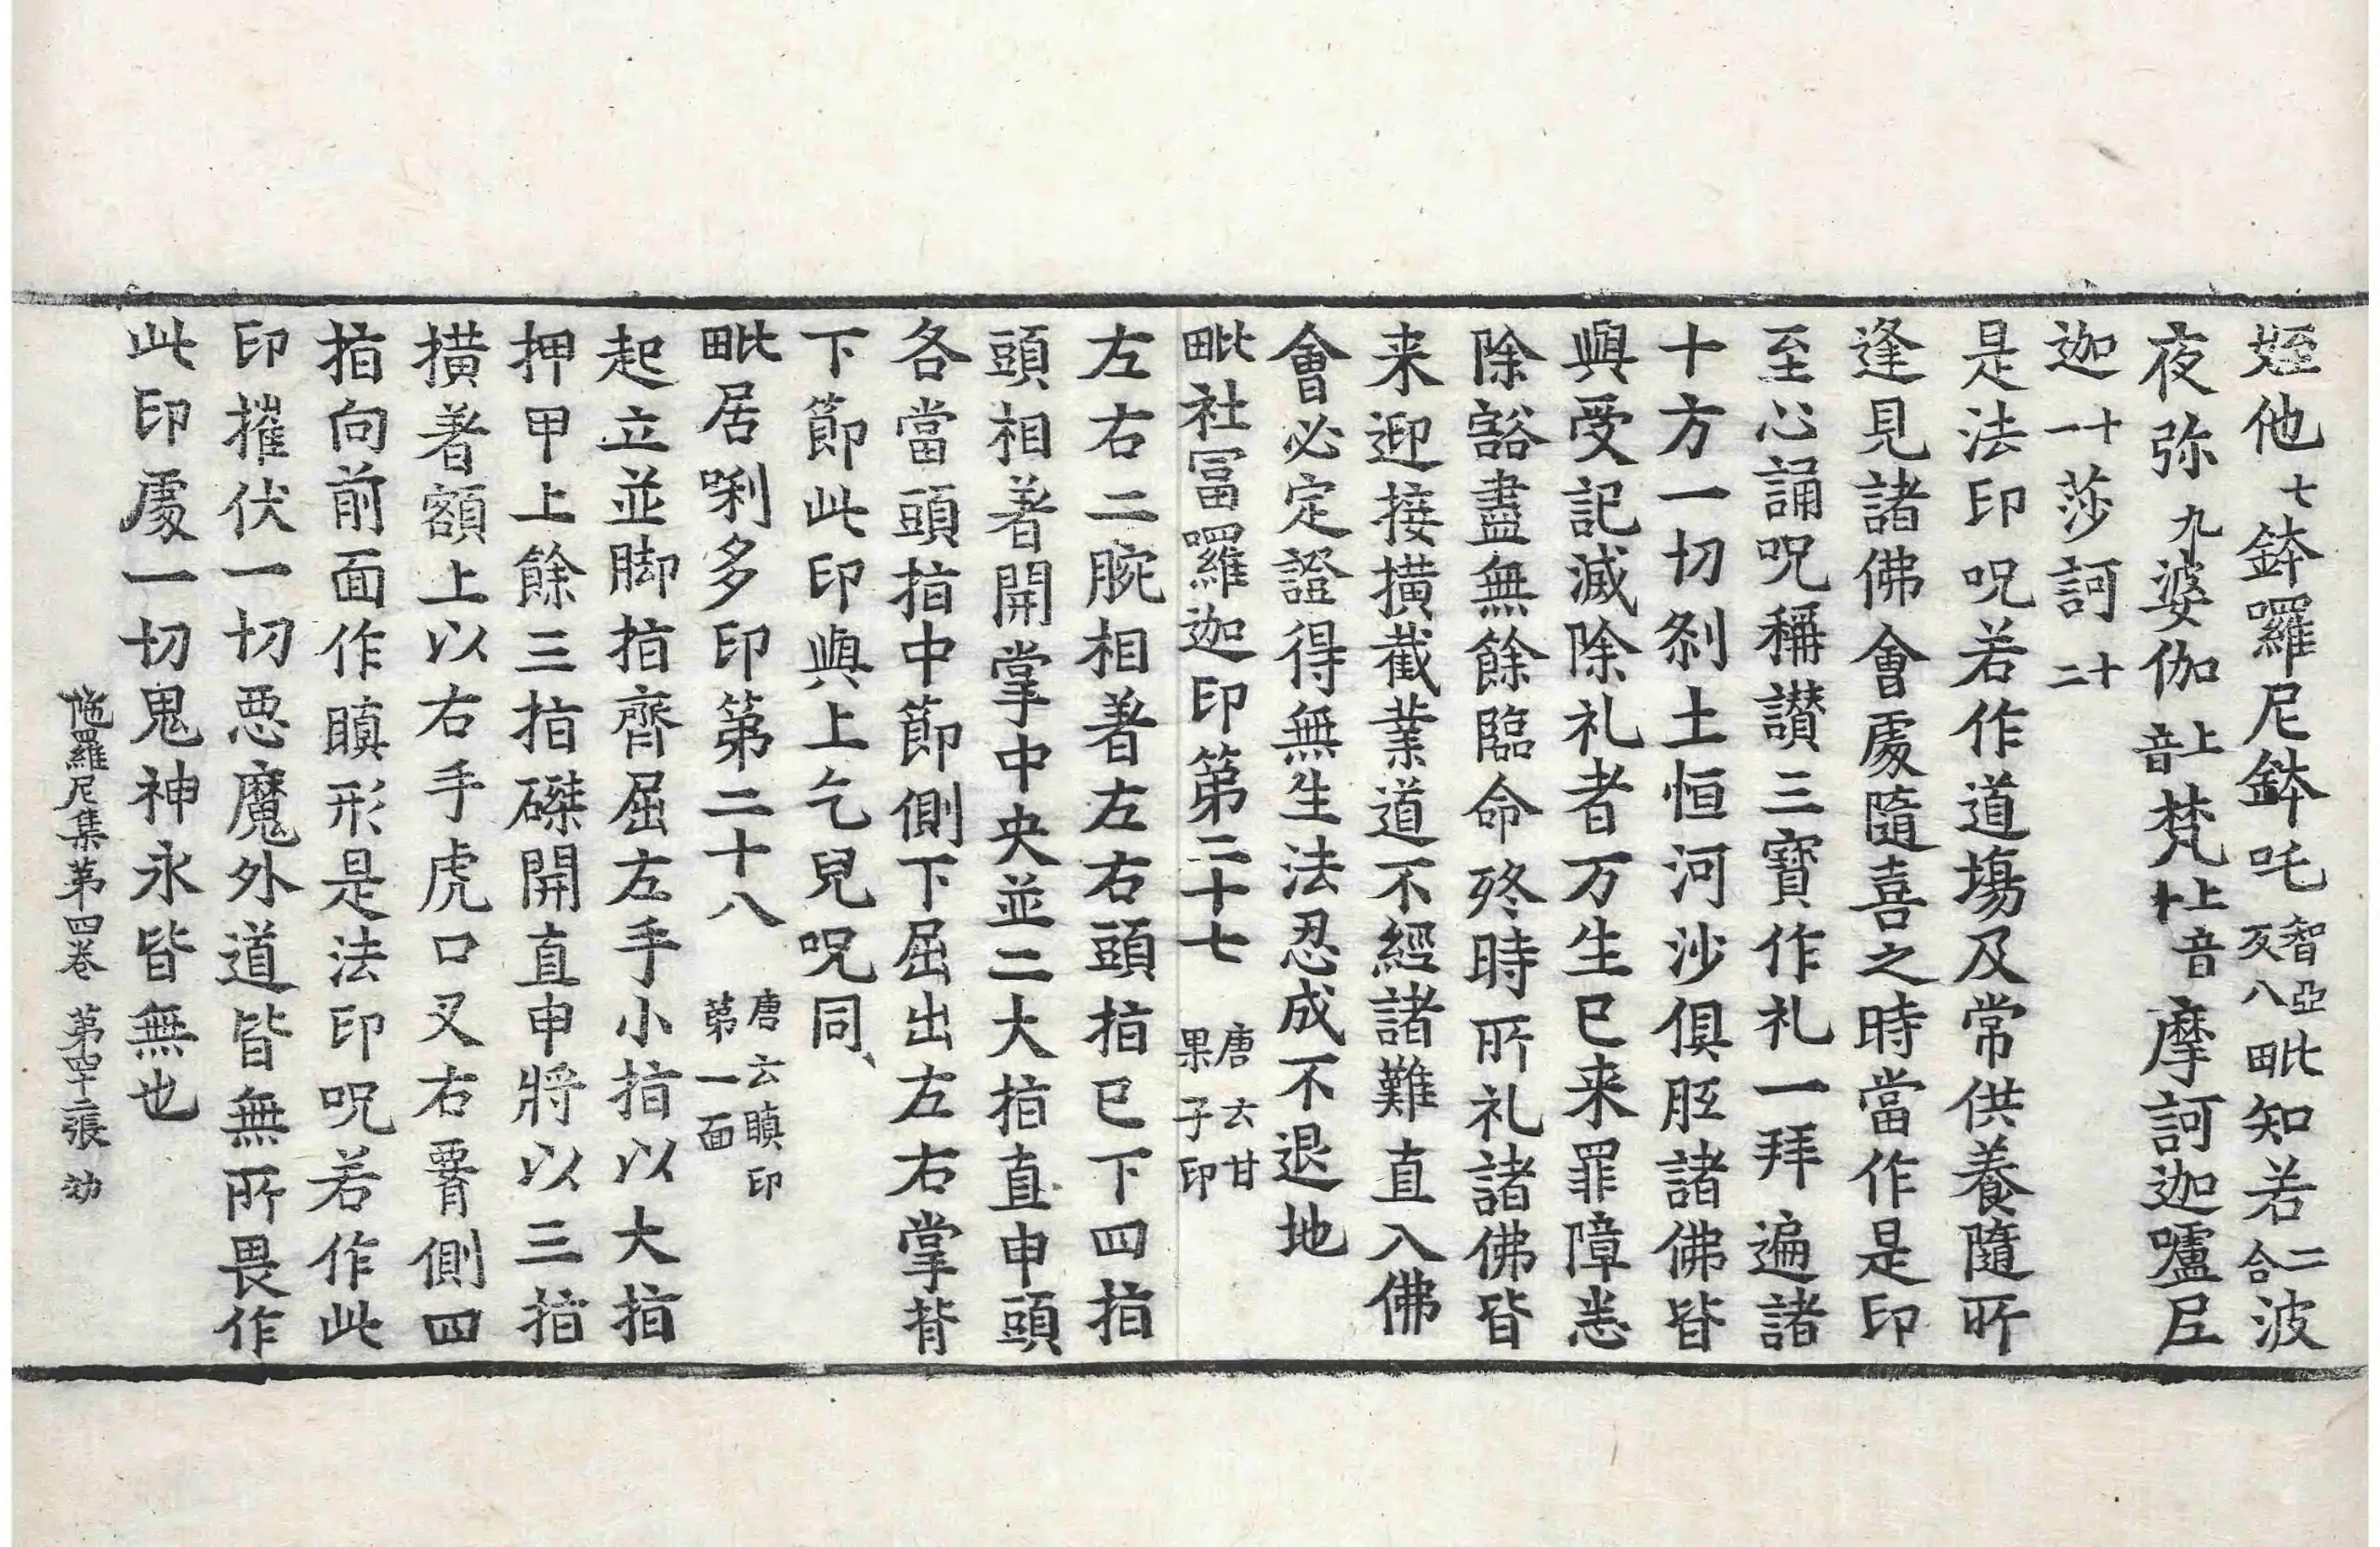 姪他七鉢囉尼鉢吒智亞反八毗知若二合波
夜弥九婆伽上音梵上音十摩訶迦嚧尼
迦十一莎訶十二
是法印呪若作道場及常供養隨所
逢見諸佛會處隨喜之時當作是印
至心誦呪稱讃三寶作礼一拜遍諸
十方一切刹土恒河沙俱胝諸佛皆
與受記滅除礼者万生已来罪障悉
除豁盡無餘臨命終時所礼諸佛皆
来迎接撗截業道不經諸難直入佛
會必定證得無生法忍成不退地
毗社冨囉迦印第二十七唐云甘果子印
左右二腕相著左右頭指已下四指
頭相著開掌中央並二大指直申頭
各當頭指中節側下屈出左右掌背
下節此印與上乞兒呪同
毗居唎多印第二十八唐云瞋印第一面
起立並脚指齊屈左手小指以大指
押甲上餘三指磔開直申將以三指
撗著額上以右手虎口叉右䯒側四
指向前面作瞋形是法印呪若作此
印摧伏一切悪魔外道皆無所畏作
此印處一切鬼神永皆無也
陁羅尼集第四卷 第四十二張 効